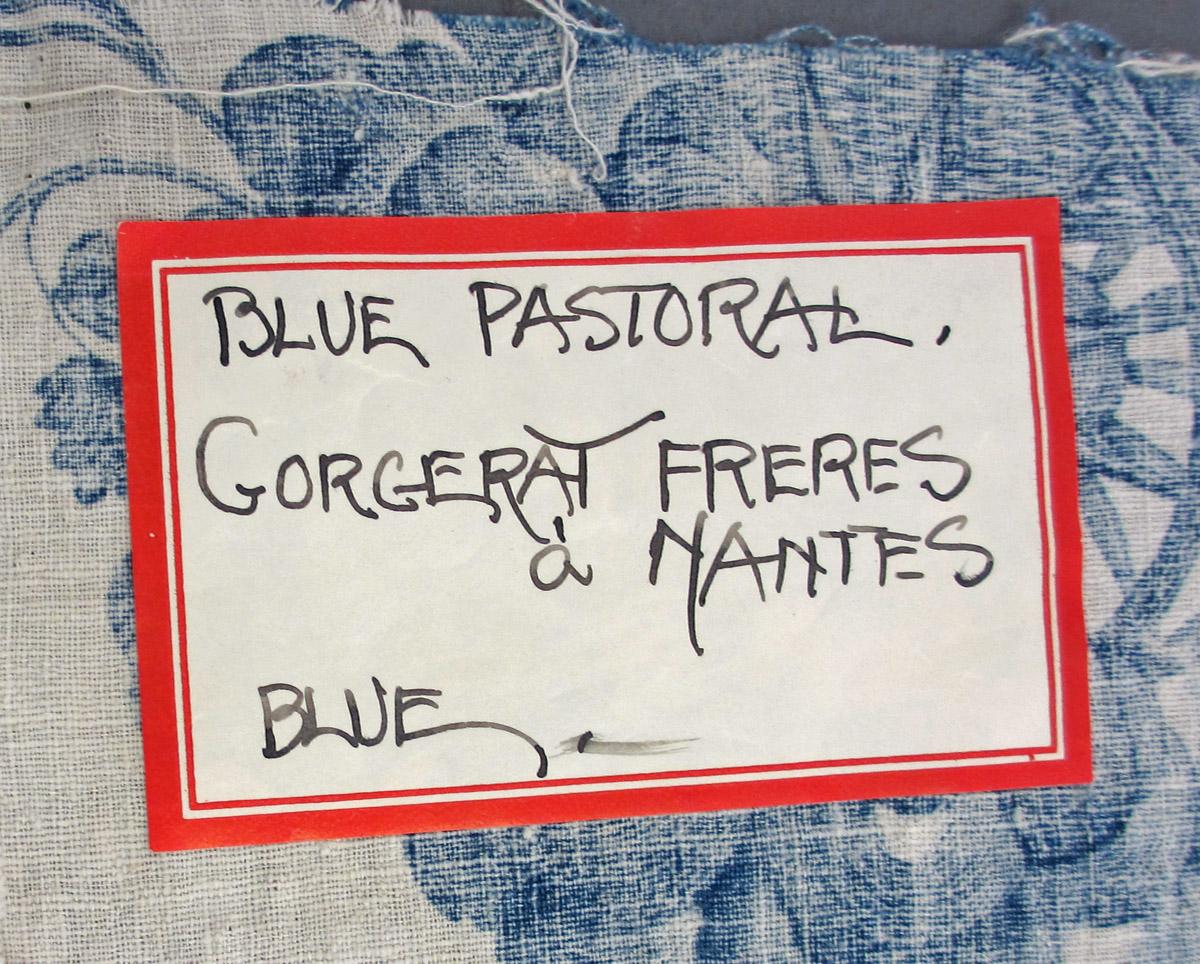 BLUE PASTORAL.
GORGERAT FRERES
à NANTES
BLUE.